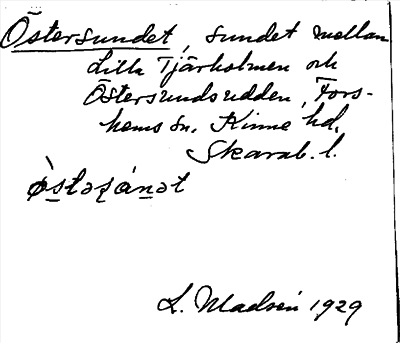 Östersundet, sundet mellan
Lilla Tjärholmen och
Östersundsudden, Fors-
hems sn. Kinne hd.
Skarab. l.
L. Madsén 1929